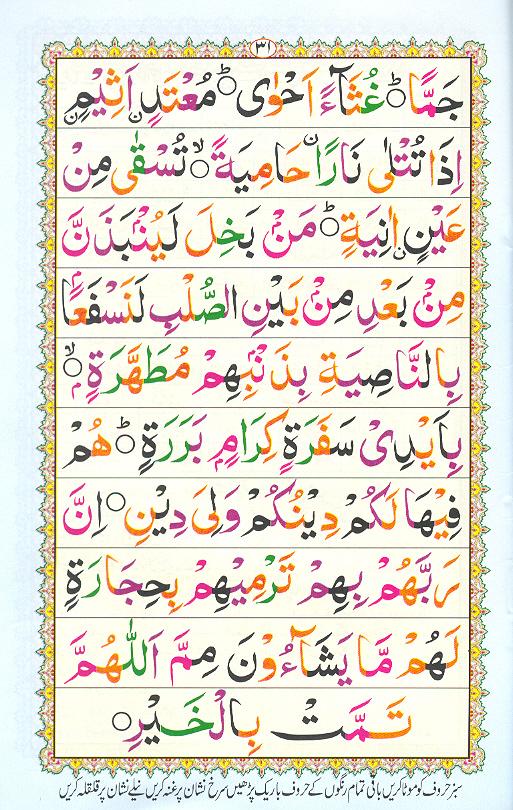 ۳۱
جَمًّا ؕ○ غُثَآءً اَحْوٰی ؕ○ مُعْتَدٍ اَثِیْمٍ ۙ
اِذَا تُتْلٰی نَارًا حَامِیَةً ۙ○ تُسْقٰی مِنْ
عَیْنٍ اٰنِیَةٍ ؕ○ مَنْۢ بَخِلَ لَیُنْۢبَذَنَّ
مِنْۢ بَعْدِ مِنْۢ بَیْنِ الصُّلْبِ لَنَسْفَعًۢا
بِالنَّاصِیَةِ بِذَنْۢبِهِمْ مُطَهَّرَةٍۭ ۙ○
بِاَیْدِیْ سَفَرَةٍ كِرَامٍۭ بَرَرَةٍ ؕ○ هُمْ
فِیْهَا لَكُمْ دِیْنُكُمْ وَلِیَ دِیْنِ ○ اِنَّ
رَبَّهُمْ بِهِمْ تَرْمِیْهِمْ بِحِجَارَةٍ
لَهُمْ مَّا یَشَآءُوْنَ مِمَّ اَللّٰهُمَّ
تَمَّتْ بِالْخَیْرِ ○
سبز حروف کو موٹا کریں باقی تمام رنگوں کے حروف باریک پڑھیں سرخ نشان پر غنہ کریں نیلے نشان پر قلقلہ کریں